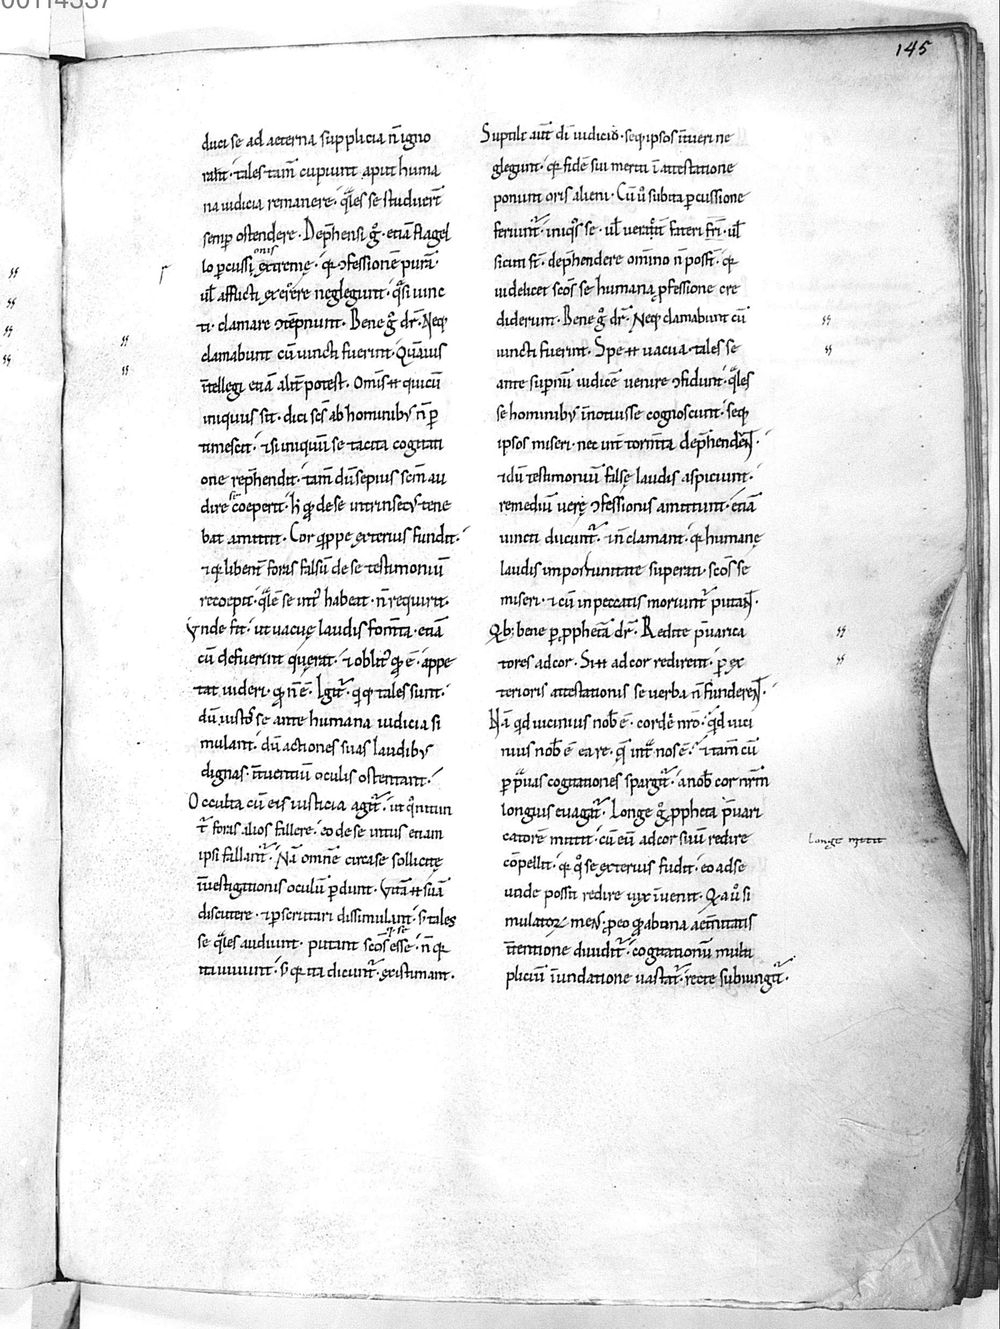 00114337
145
duci se ad aeterna supplicia n̄ igno
rant· tales tam̄ cupiunt aput huma
na iudicia remanere· q̄les se studuer̄
semp̄ ostendere· Depħensi g̊· etiā flagel
lo ꝑcussi extreme onis· qđ ꝯfessionē purā·
ul̄ afflicti exerere neglegunt· q̄si uinc
ti· clamare ꝯtēpnunt· Bene g̊ dr̄· Neq
clamabunt cū uincti fuerint· Quāuis
īntellegi etiā alit̄ potest· Omīs etī quicū
iniquus sit· dici ses̄ ab hominibꝰ n̄ ꝑ
timescit· ⁊ si iniquū se tacita cogitati
one rep̄hendit· tam̄ dū sepius sc̄m au
dire se coeperit· h̄ qđ de se intrinsecꝰ tene
bat amittit· Cor q̄ppe exterius fundit·
⁊ q libent̄ foris falsū de se testimoniū
recoepit· q̄le se int̄ habeat· n̄ requirit·
Vnde fit· ut uacue laudis fom̄ta· etiā
cū defuerint querat· ⁊ oblit̄ qđ ē· appe
tat uideri· qđ n̄ ē· Igit̄· qiq tales sunt·
dū iustos se ante humana iudicia si
mulant· dū actiones suas laudibꝰ
dignas· īntuentiū oculis ostentant·
Occulta cū eis iusticia agit̄· ut q̊ nitun
t̄ foris alios fallere· eo de se intus etiam
ipsi fallant̄· Nā omnē circa se sollicite
īuestigationis oculū ꝑdunt· Vitā etī suā
discutere· ⁊ ꝑscrutari dissimulant· s; tales
se q̄les audiunt· putant sc̄os q; se esse· n̄ qđ
ita uiuunt· s; qđ ita dicunt̄· existimant·
Suptile aut̄ dī iudiciū· seq ipsos īntueri ne
glegunt· qđ fidē sui meriti ī attestatione
ponunt oris alieni· Cū ů subita ꝑcussione
feriunt̄· iniq̊s se· ul̄ uerit̄ fateri fr̄i· ul̄
sicuti st̄· depħendere om̄ino n̄ poss̄t· qđ
uidelicet sc̄os se humana ꝓfessione cre
diderunt· Bene g̊ dr̄· Neq clamabunt cū
uincti fuerint· Spe etī uacua· tales se
ante sup̄nū iudicē uenire ꝯfidunt· q̄les
se hominibꝰ īnotuisse cognoscunt· seq
ipsos miseri· nec int̄ torm̄ta depħender̄·
⁊ dū testimoniū false laudis aspiciunt·
remediū uere ꝯfessionis amittunt· etiā
uincti ducunt̄· ⁊ n̄ clamant· qđ humane
laudis importunitate superati· sc̄os se
miseri· ⁊ cū in peccatis moriunt̄ putar̄·
Qb; bene ꝑ ꝓphetā dr̄· Redite p̄uarica
tores ad cor· Si etī ad cor redirent· ꝑ ex
terioris attestationis se uerba n̄ funderer̄·
Nā qđ uicinius nob̄ ē· cordē nr̄o· qđ uici
nius nob̄ ē ea re· quę int̄ nos ē· ⁊ tam̄ cū
ꝑ p̄uas cogitationes spargit̄· a nob̄ cor nr̄m
longius euagit̄· Longe g̊ ꝓpheta p̄uari
catorē mittit· cū eū ad cor suū redire
cōpellit· qđ q̊ se exterius fudit· eo ad se
unde possit redire uix īuenit· Q a ů si
mulatorꝝ mens· ꝑ eo qđ abuna aet̄nitatis
īntentione diuidit̄· cogitationū multi
pliciū īnundatione uastat̄· recte subiungit̄·
Longe mittit